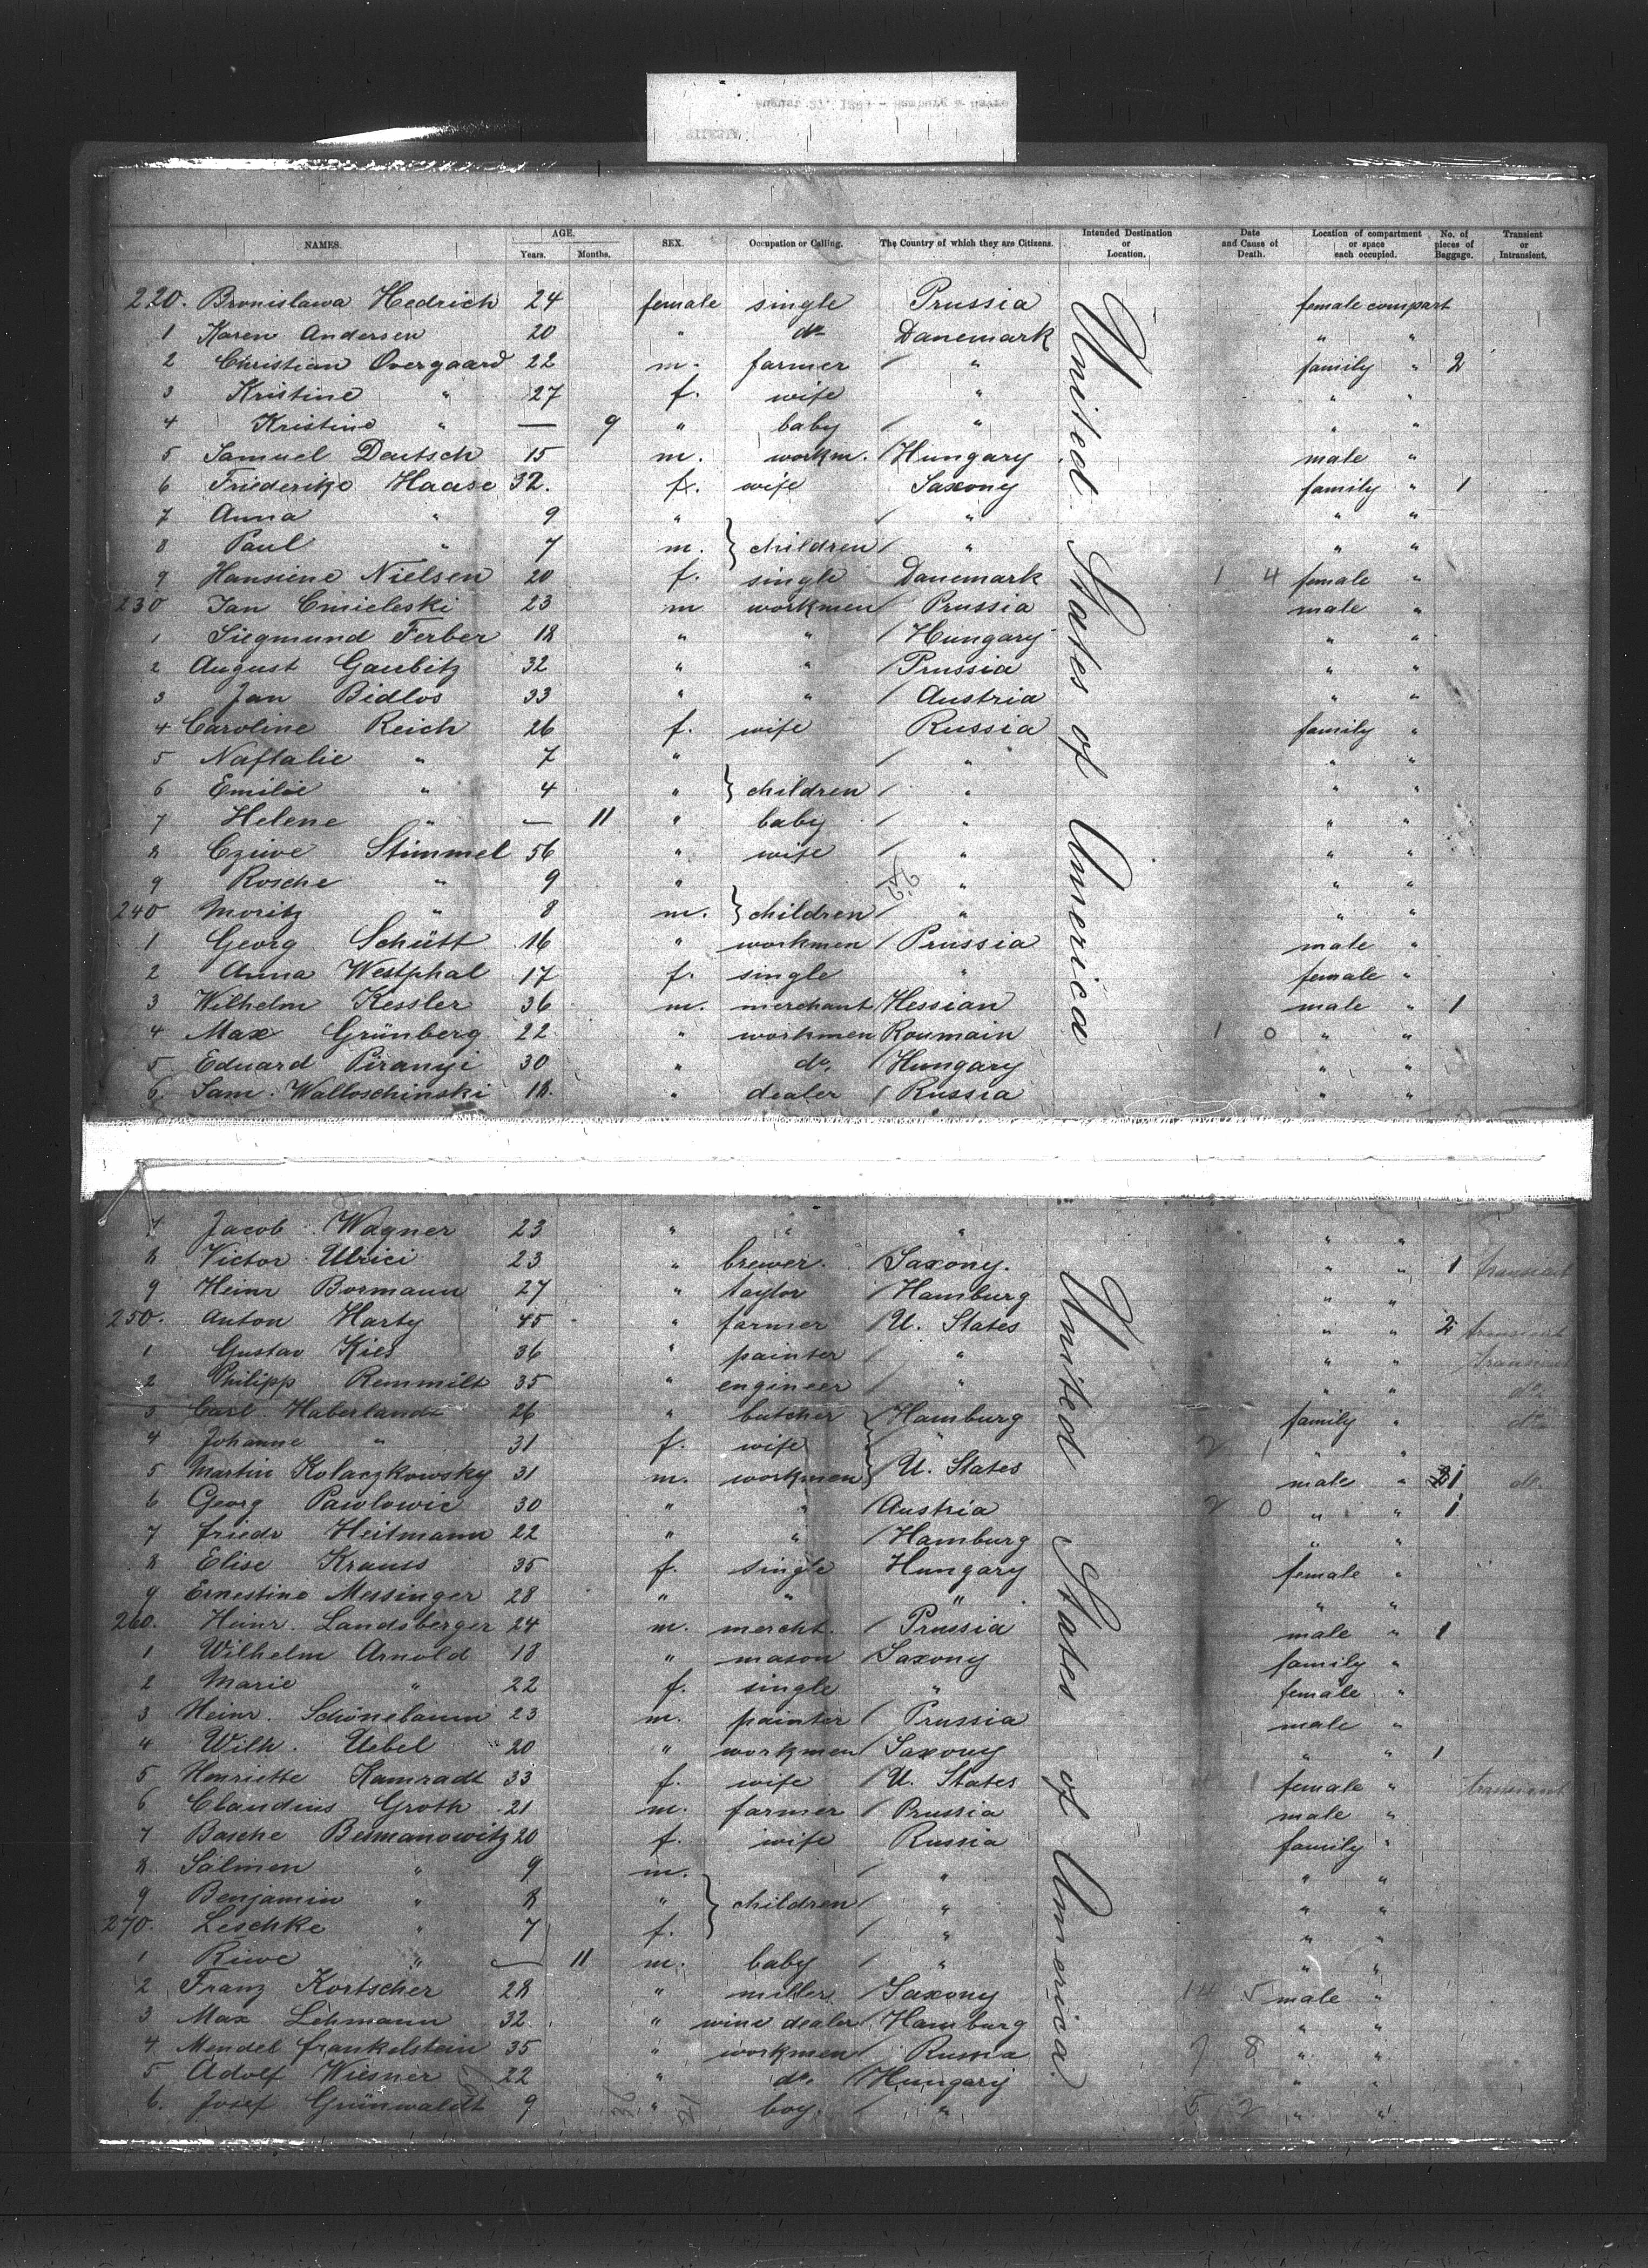 NAMES. AGE. Years. Months. SEX. Occupation or Calling. The Country of which they are Citizens. Intended Destination or Location. Date and Cause of Death. Location of compartment or space each occupied. No. of pieces of Baggage. Transient or Intransient.
220. Bronislawa Hedrich 24 female single Prussia female compart
1 Karen Andersen 20 " do Danemark " "
2 Christian Overgaard 22 m. farmer " family " 2
3 Kristine " 27 f. wife " " "
4 Kristine " — 9 " baby " " "
5 Samuel Deutsch 15 m. workm. Hungary male "
6 Friederike Haase 32. f. wife Saxony family " 1
7 Anna " 9 " " " "
8 Paul " 7 m. } children " " "
9 Hansiene Nielsen 20 f. single Danemark 1 4 female "
230 Jan Cmieleski 23 m workmen Prussia male "
1 Siegmund Ferber 18 " " Hungary " "
2 August Gaubitz 32 " " Prussia " "
3 Jan Bidlos 33 " " Austria " "
4 Caroline Reich 26 f. wife Russia family "
5 Naftalie " 7 " " " "
6 Emilie " 4 " } children " " "
7 Helene " — 11 " baby " " "
8 Cziwe Stimmel 56 " wife " " "
9 Rosche " 9 " " " "
240 Moritz " 8 m. } children " " "
1 Georg Schütt 16 " workmen Prussia male "
2 Anna Westphal 17 f. single " female "
3 Wilhelm Kessler 36 m. merchant Hessian male " 1
4 Max Grünberg 22 " workmen Roumain 1 0 " "
5 Eduard Piranyi 30 " do. Hungary " "
6. Sam. Walloschinski 18. " dealer Russia " "
United States of America
7 Jacob Wagner 23 " " " " "
8 Victor Ulrici 23 " brewer. Saxony. " " 1 transient
9 Heinr Bormann 27 " taylor Hamburg " "
250. Anton Harty 45 " farmer U. States " " 2 transient
1 Gustav Kies 36 " painter " " " transient
2 Philipp Remmilt 35 " engineer " " " do
3 Carl Haberlandt 26 " butcher Hamburg family " do
4 Johanne " 31 f. wife " 2 1 " "
5 Martin Kolaczkowsky 31 m. workmen U. States male " 1 do.
6 Georg Pawlowic 30 " " Austria 2 0 " " 1
7 friedr Heitmann 22 " " Hamburg " "
8 Elise Krauss 35 f. single Hungary female "
9 Ernestine Messinger 28 " " " " "
260. Heinr. Landsberger 24 m. mercht. Prussia male " 1
1 Wilhelm Arnold 18 " mason Saxony family "
2 Marie " 22 f. single " female "
3 Heinr. Schönebaum 23 m. painter Prussia male "
4 Wilh. Uebel 20 " workmen Saxony " " 1
5 Henriette Kamradt 33 f. wife U. States 1 female " transient
6 Claudius Groth 21 m. farmer Prussia male "
7 Basche Besmanowitz 20 f. wife Russia family "
8 Salmen " 9 m. " " "
9 Benjamin " 8 " } children " " "
270. Leschke " 7 f. " " "
1 Riwe " — 11 m. baby " " "
2 Franz Kortscher 28 " miller Saxony 14 5 male "
3 Max Lehmann 32. " wine dealer Hamburg " "
4 Mendel frankelstein 35 " workmen Russia 7 8 " "
5 Adolf Wiesner 22 " do. Hungary " "
6. Josef Grünwaldt 9 " boy. " 5 2 " "
United States of America.